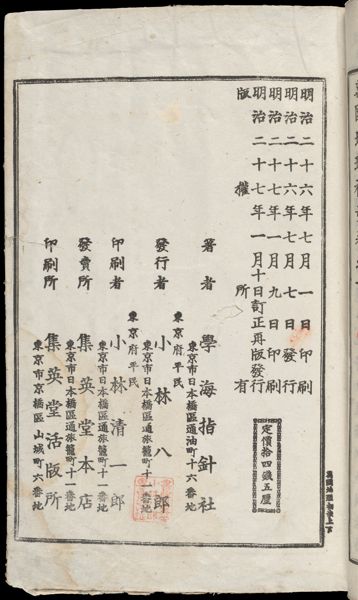 明治二十六年七月一日印刷
明治二十六年七月七日發行
明治二十七年一月九日印刷
明治二十七年一月十日訂正再版發行
版權所有
定價拾四錢五厘
著者 學海指針社
東京市日本橋區通油町十六番地
東京府平民
發行者 小林八郎
東京市日本橋區通旅籠町十一番地
東京府平民
印刷者 小林清一郎
東京市日本橋區通旅籠町十一番地
發賣所 集英堂本店
東京市日本橋區通旅籠町十一番地
印刷所 集英堂活版所
東京市京橋區山城町六番地